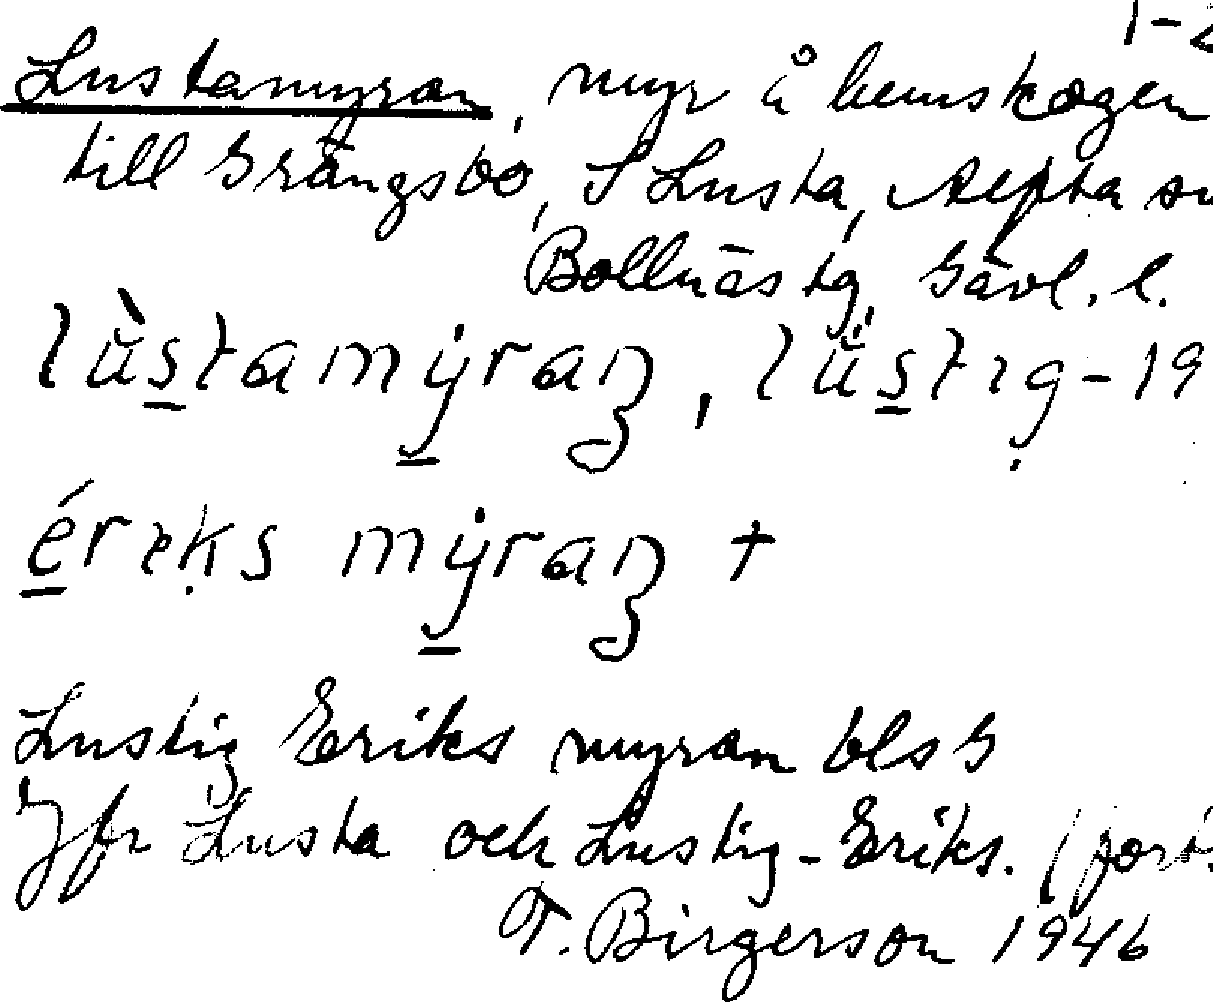 1-2
Lustamyran, myr å hemskogen
till Grängsbo, S Lusta, Alfta sn
Bollnäs tg, Gävl. l.
lùstamẏraȵ, lü̇stıg-19
éreks mẏraȵ +
Lustig Eriks myran bls G
Jfr Lusta och Lustig-Eriks. (forts
T. Birgerson 1946